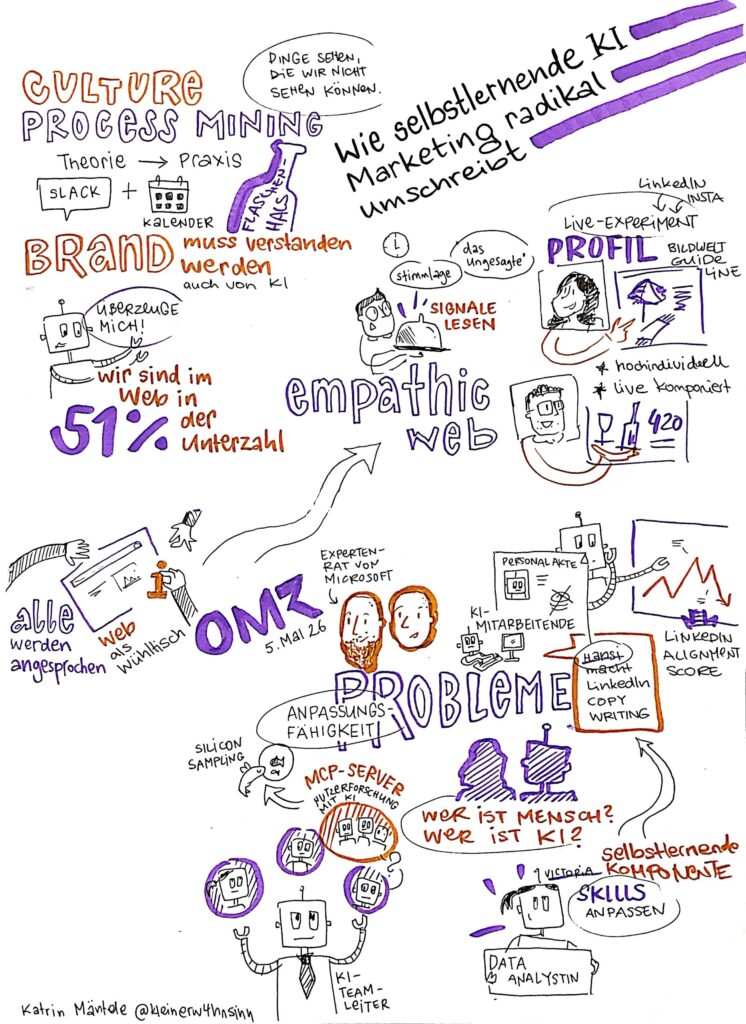 Wie selbstlernende KI
Marketing radikal
umschreibt
CULTURE
PROCESS MINING
DINGE SEHEN,
DIE WIR NICHT
SEHEN KÖNNEN.
Theorie → Praxis
SLACK
+
KALENDER
FLASCHEN-
HALS
BRAND muss verstanden
werden
auch von KI
ÜBERZEUGE
MICH!
wir sind im
Web in
51% der
Unterzahl
stimmlage
"das
Ungesagte"
SIGNALE
LESEN
empathic
web
LinkedIn
INSTA
Live-EXPERIMENT
PROFIL
BILDWELT
GUIDE
LINE
* hochindividuell
* live komponiert
420
alle
werden
angesprochen
web
als
Wühltisch
i
OMR
5. Mai 26
EXPERTEN-
RAT VON
MICROSOFT
PERSONALAKTE
KI-
MITARBEITENDE
LINKEDIN
ALIGNMENT
SCORE
Hansi
macht
LinkedIn
COPY
WRITING
PROBLEME
ANPASSUNGS-
FÄHIGKEIT
SILICON
SAMPLING
MCP-SERVER
NUTZERFORSCHUNG
MIT KI
WER IST MENSCH?
WER IST KI?
selbstlernende
KOMPONENTE
VICTORIA
SKILLS
ANPASSEN
DATA
ANALYSTIN
KI-
TEAM-
LEITER
?
Katrin Mäntele @kleinerw4hnsinn